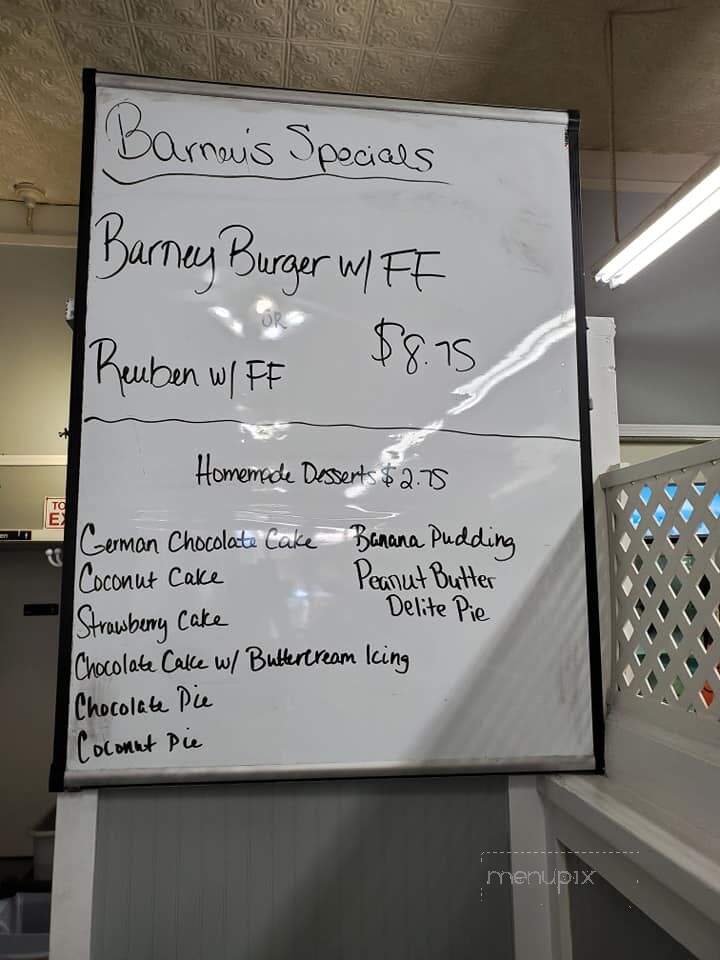 Barney's Specials
Barney Burger w/ FF
OR
Reuben w/ FF
$8.75
Homemade Desserts $2.75
German Chocolate Cake
Coconut Cake
Strawberry Cake
Chocolate Cake w/ Buttercream Icing
Chocolate Pie
Coconut Pie
Banana Pudding
Peanut Butter
Delite Pie
TO
EX
menupix